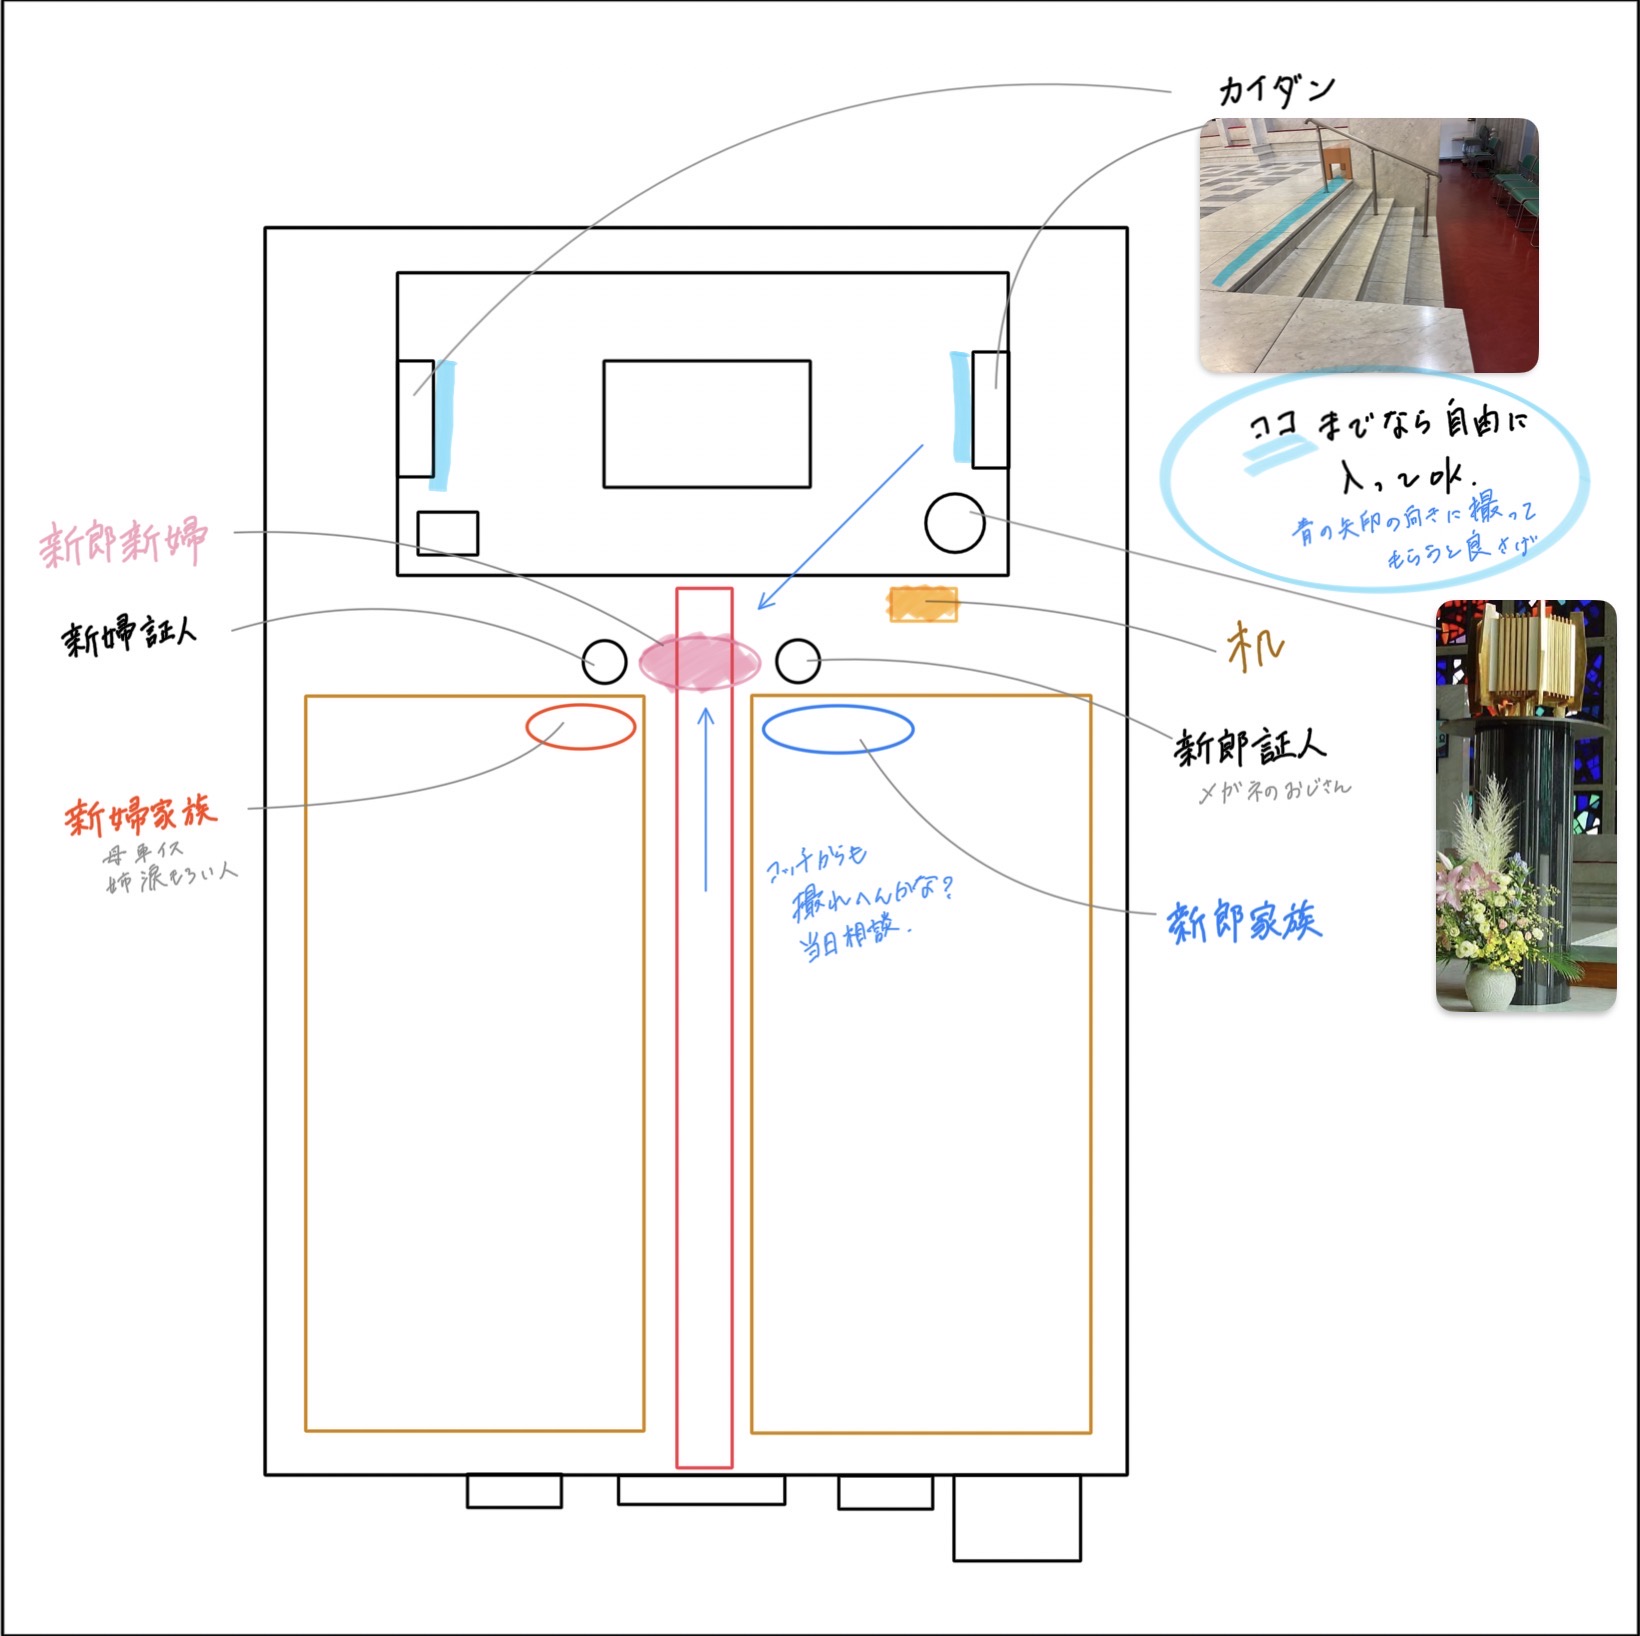 カイダン
ココまでなら自由に
入ってOK.
青の矢印の向きに撮って
もらうと良さげ
新郎新婦
新婦証人
机
新郎証人
メガネのおじさん
新婦家族
母車イス
姉涙もろい人
コッチからも
撮れへんかな?
当日相談.
新郎家族